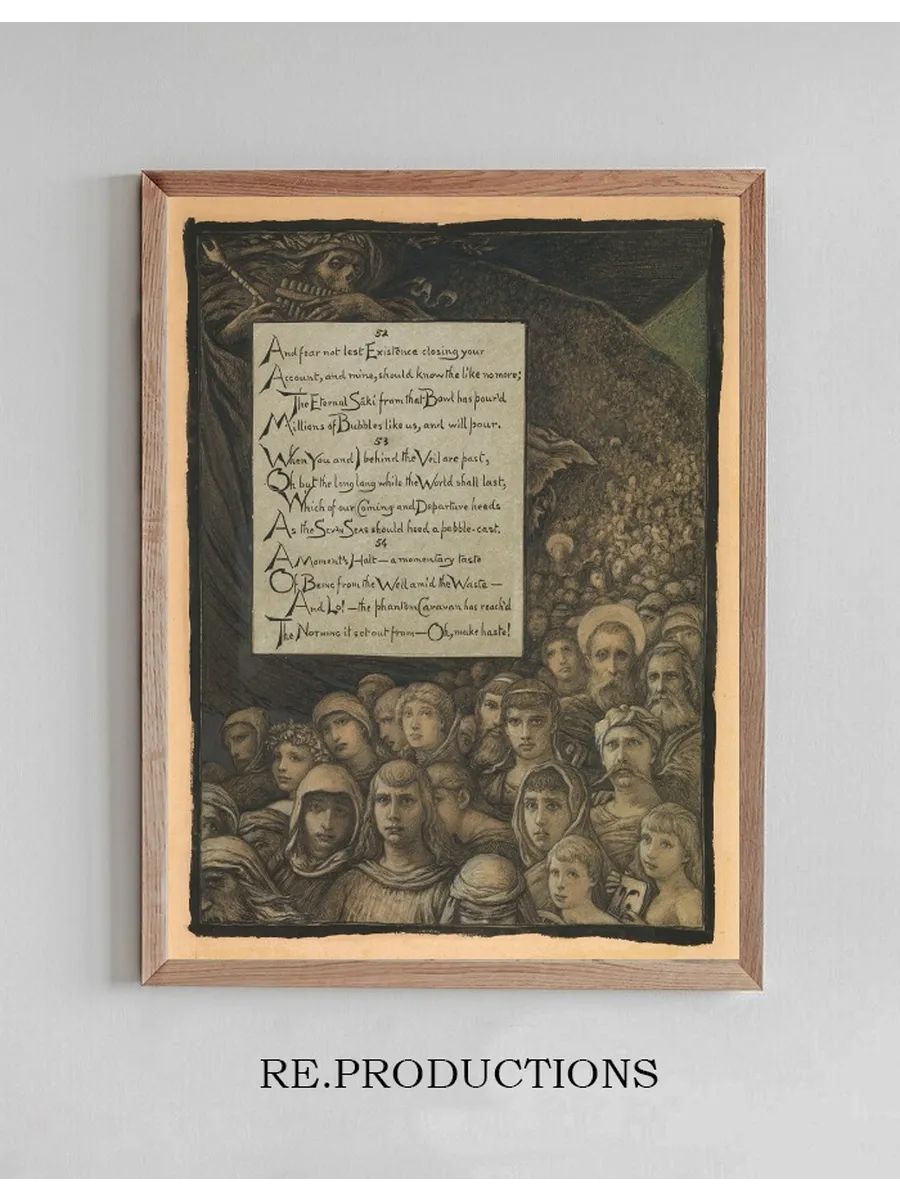 52
And fear not lest Existence closing your
Account, and mine, should know the like no more;
The Eternal Sákí from that Bowl has pour'd
Millions of Bubbles like us, and will pour.
53
When You and I behind the Veil are past,
Oh but the long long while the World shall last,
Which of our Coming and Departure heeds
As the SEV'N SEAS should heed a pebble-cast.
54
A Moment's Halt—a momentary taste
Of BEING from the Well amid the Waste—
And Lo!—the phantom Caravan has reach'd
The NOTHING it set out from—Oh, make haste!
RE.PRODUCTIONS